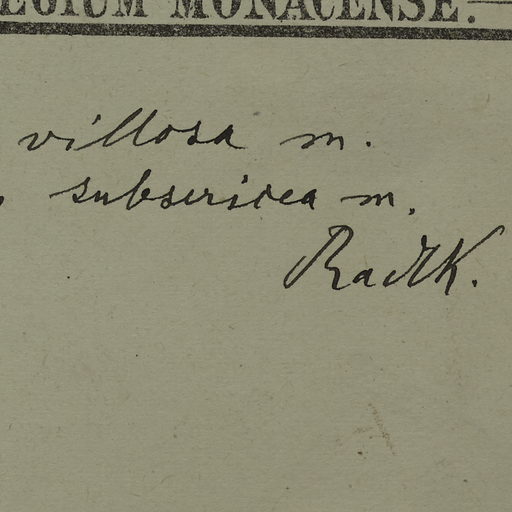 EGIUM MONACENSE.
villosa m.
subsericea m.
Radlk.